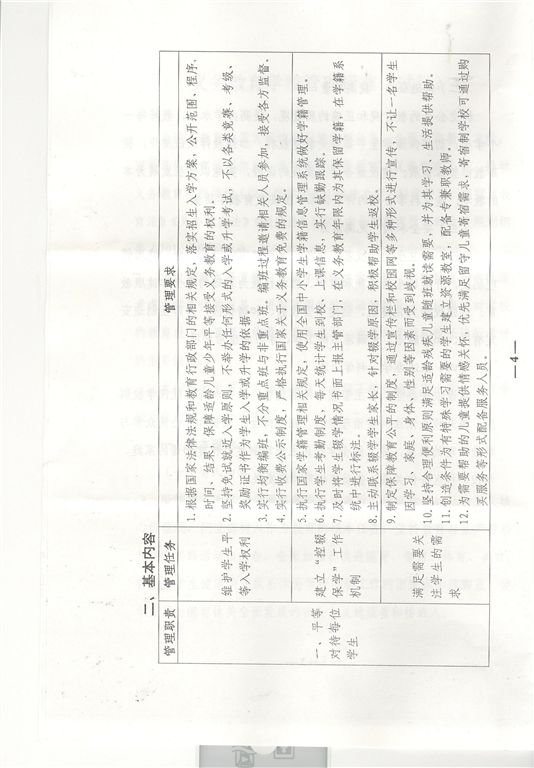 二、基本内容
管理职责 管理任务 管理要求
一、平等
对待每位
学生
维护学生平
等入学权利
1. 根据国家法律法规和教育行政部门的相关规定，落实招生入学方案，公开范围、程序、
时间、结果，保障适龄儿童少年平等接受义务教育的权利。
2. 坚持免试就近入学原则，不举办任何形式的入学或升学考试，不以各类竞赛、考级、
奖励证书作为学生入学或升学的依据。
3. 实行均衡编班，不分重点班与非重点班。编班过程邀请相关人员参加，接受各方监督。
4. 实行收费公示制度，严格执行国家关于义务教育免费的规定。
建立“控辍
保学”工作
机制
5. 执行国家学籍管理相关规定，使用全国中小学生学籍信息管理系统做好学籍管理。
6. 执行学生考勤制度，每天统计学生到校、上课信息，实行缺勤跟踪。
7. 及时将学生辍学情况书面上报主管部门，在义务教育年限内为其保留学籍，在学籍系
统中进行标注。
8. 主动联系辍学学生家长，针对辍学原因，积极帮助学生返校。
满足需要关
注学生的需
求
9. 制定保障教育公平的制度，通过宣传栏和校园网等多种形式进行宣传，不让一名学生
因学习、家庭、身体、性别等因素而受到歧视。
10. 坚持合理便利原则满足适龄残疾儿童随班就读需要，并为其学习、生活提供帮助。
11. 创造条件为有特殊学习需要的学生建立资源教室，配备专兼职教师。
12. 为需要帮助的儿童提供情感关怀，优先满足留守儿童寄宿需求，寄宿制学校可通过购
买服务等形式配备服务人员。
— 4 —